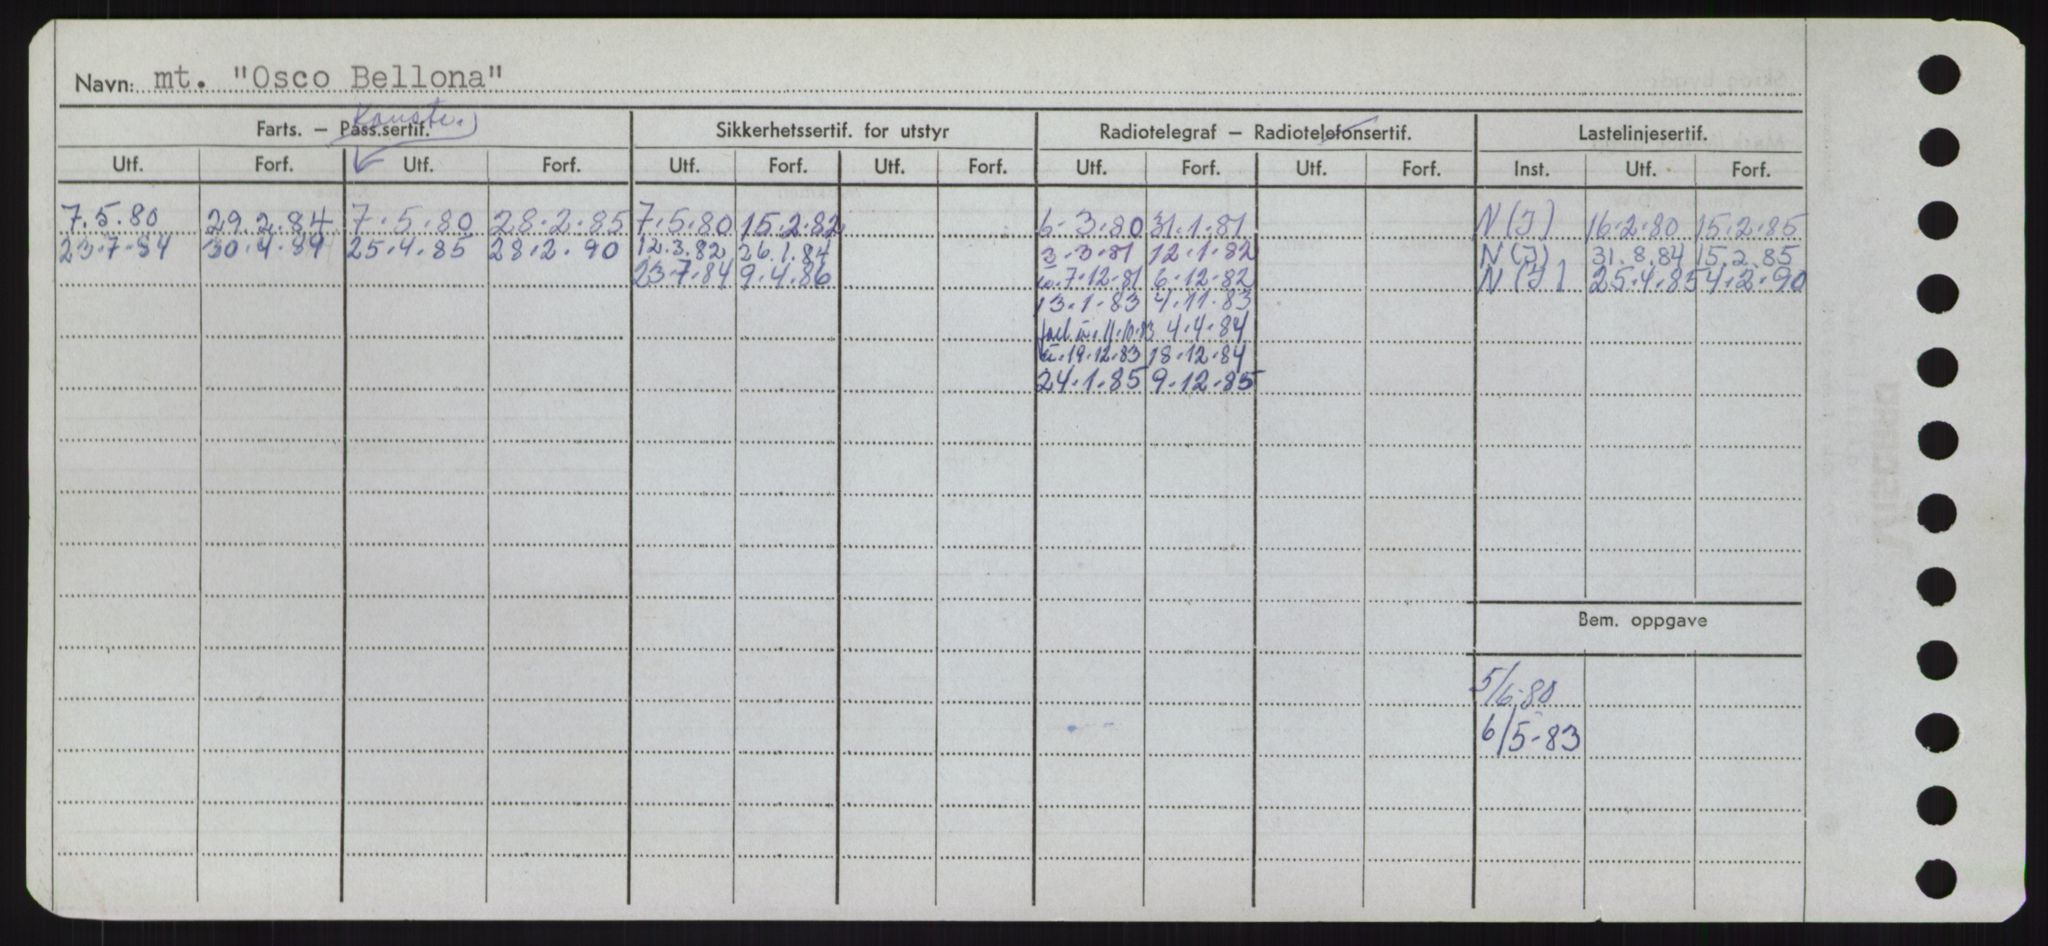 Navn: mt. "Osco Bellona"
Konstr.
Farts. – Pass.sertif. Sikkerhetssertif. for utstyr Radiotelegraf – Radiotelefonsertif. Lastelinjesertif.
Utf. Forf. Utf. Forf. Utf. Forf. Utf. Forf. Utf. Forf. Utf. Forf. Inst. Utf. Forf.
7.5.80 29.2.84 7.5.80 28.2.85 7.5.80 15.2.82 6.3.80 31.1.81 N(I) 16.2.80 15.2.85
23.7.84 30.4.89 25.4.85 28.2.90 12.3.82 26.1.84 3.3.81 12.1.82 N(I) 31.8.84 15.2.85
23.7.84 9.4.86 7.12.81 6.12.82 N(I) 25.4.85 4.2.90
13.1.83 4.11.83
11.10.83 4.4.84
19.12.83 18.12.84
24.1.85 9.12.85
Bem. oppgave
5/6-80
6/5-83